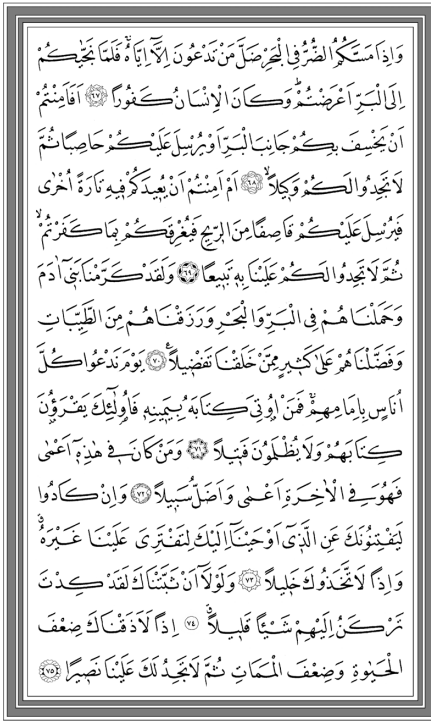 وَاِذَا مَسَّكُمُ الضُّرُّ فِي الْبَحْرِ ضَلَّ مَنْ تَدْعُونَ اِلَّٓا اِيَّاهُۚ فَلَمَّا نَجّٰيكُمْ
اِلَى الْبَرِّ اَعْرَضْتُمْۜ وَكَانَ الْاِنْسَانُ كَفُورًا ﴿٦٧﴾ اَفَاَمِنْتُمْ
اَنْ يَخْسِفَ بِكُمْ جَانِبَ الْبَرِّ اَوْ يُرْسِلَ عَلَيْكُمْ حَاصِبًا ثُمَّ
لَا تَجِدُوا لَكُمْ وَكِيلًاۙ ﴿٦٨﴾ اَمْ اَمِنْتُمْ اَنْ يُعِيدَكُمْ فِيهِ تَارَةً اُخْرٰى
فَيُرْسِلَ عَلَيْكُمْ قَاصِفًا مِنَ الرِّيحِ فَيُغْرِقَكُمْ بِمَا كَفَرْتُمْۙ
ثُمَّ لَا تَجِدُوا لَكُمْ عَلَيْنَا بِهِ تَبِيعًا ﴿٦٩﴾ وَلَقَدْ كَرَّمْنَا بَنِٓي اٰدَمَ
وَحَمَلْنَاهُمْ فِي الْبَرِّ وَالْبَحْرِ وَرَزَقْنَاهُمْ مِنَ الطَّيِّبَاتِ
وَفَضَّلْنَاهُمْ عَلٰى كَثِيرٍ مِمَّنْ خَلَقْنَا تَفْضِيلًا۟ ﴿٧٠﴾ يَوْمَ نَدْعُوا كُلَّ
اُنَاسٍ بِاِمَامِهِمْۚ فَمَنْ اُو۫تِيَ كِتَابَهُ بِيَمِينِهِ فَاُو۬لٰٓئِكَ يَقْرَؤُ۫نَ
كِتَابَهُمْ وَلَا يُظْلَمُونَ فَتِيلًا ﴿٧١﴾ وَمَنْ كَانَ فِي هٰذِهِٓ اَعْمٰى
فَهُوَ فِي الْاٰخِرَةِ اَعْمٰى وَاَضَلُّ سَبِيلًا ﴿٧٢﴾ وَاِنْ كَادُوا
لَيَفْتِنُونَكَ عَنِ الَّذِٓي اَوْحَيْنَٓا اِلَيْكَ لِتَفْتَرِيَ عَلَيْنَا غَيْرَهُۗ
وَاِذًا لَاتَّخَذُوكَ خَلِيلًا ﴿٧٣﴾ وَلَوْلَٓا اَنْ ثَبَّتْنَاكَ لَقَدْ كِدْتَ
تَرْكَنُ اِلَيْهِمْ شَيْـًٔا قَلِيلًاۗ ﴿٧٤﴾ اِذًا لَاَذَقْنَاكَ ضِعْفَ
الْحَيٰوةِ وَضِعْفَ الْمَمَاتِ ثُمَّ لَا تَجِدُ لَكَ عَلَيْنَا نَصِيرًا ﴿٧٥﴾